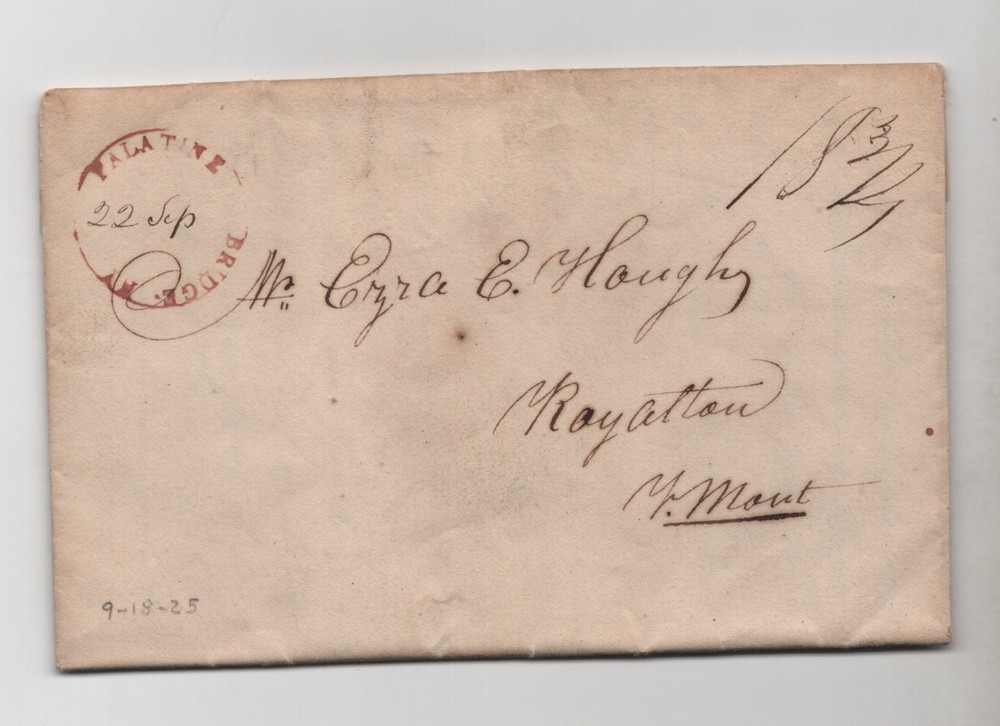 PALATINE BRIDGE.
22 Sep
18 3/4
Mr. Ezra E. Hough
Royalton
V. Mont
9-18-25